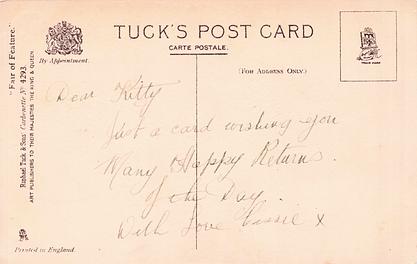 TUCK'S POST CARD
CARTE POSTALE.
By Appointment.
(FOR ADDRESS ONLY.)
"Fair of Feature."
Raphael Tuck & Sons' Carbonette No 4293.
ART PUBLISHERS TO THEIR MAJESTIES THE KING & QUEEN
Dear Kitty
Just a card wishing you
Many Happy Returns.
of the Day.
With Love Cissie x
Printed in England.